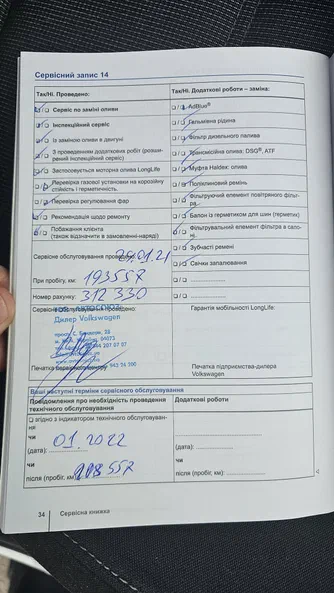 Сервісний запис 14
Так/Ні. Проведено:
Так/Ні. Додаткові роботи – заміна:
Сервіс по заміні оливи
Інспекційний сервіс
Із заміною оливи в двигуні
З проведенням додаткова робіт (розширений інспекційний сервіс)
Застосовується моторна олива LongLife
Перевірка газової установки на корозійну стійкість і герметичність.
Перевірка регулювання фар
Рекомендація щодо ремонту
Побажання клієнта
(також відзначити в замовленні-наряді)
AdBlue®
Гальмівна рідина
Фільтр дизельного палива
Трансмісійна олива: DSG®, ATF
Муфта Haldex: олива
Поліклиновий ремінь
Фільтруючий елемент повітряного фільтра
Балон із герметиком для шин (герметик)
Фільтрувальний елемент фільтра в салоні
Зубчасті ремені
Свічки запалювання
Сервісне обслуговування проведено: 29.01.21
При пробігу, км: 193557
Номер рахунку: 312 330
Сервісне обслуговування
Дилер Volkswagen
04073
Гарантія мобільності LongLife:
Печатка підприємства-дилера
Volkswagen
Ваші наступні терміни сервісного обслуговування
Повідомлення про необхідність проведення
технічного обслуговування
Додаткові роботи
згідно з індикатором технічного обслуговування
чи
(дата): 01.2022
чи
після (пробіг, км) 208557
(дата):
чи
після (пробіг, км):
34 Сервісна книжка